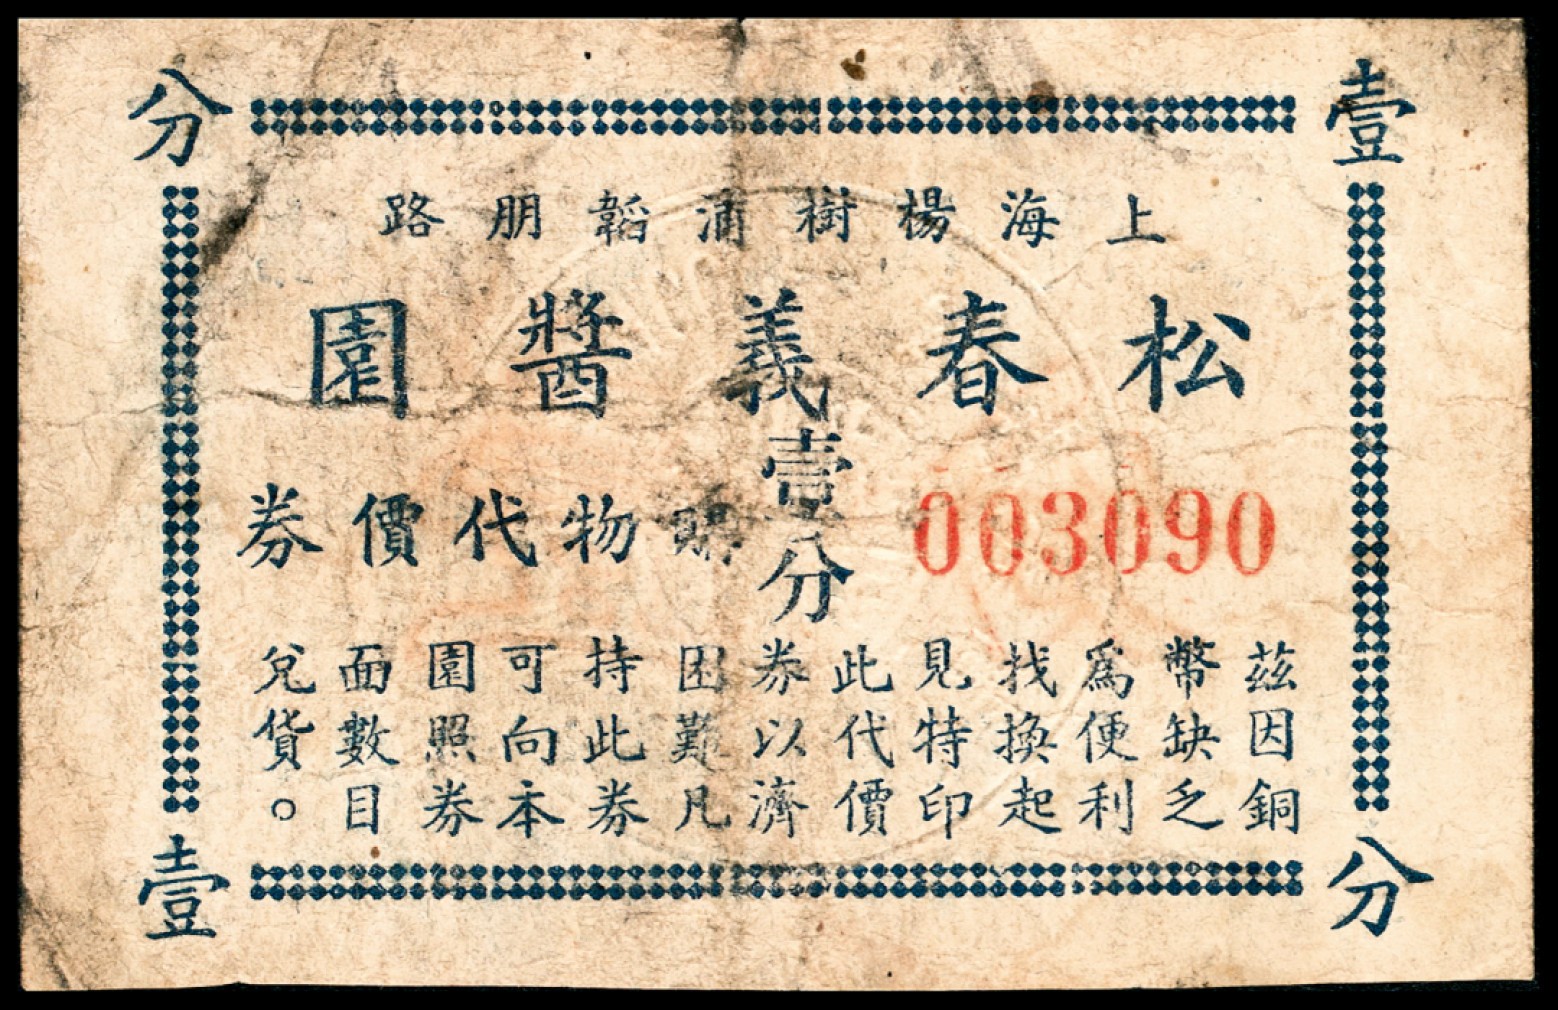 壹分
上海楊樹浦韜朋路
松春義醬園
壹分
003090
購物代價券
茲因銅
幣缺乏
爲便利
找換起
見特印
此代價
券以濟
困難凡
持此券
可向本
園照券
面數目
兌貨。
壹分